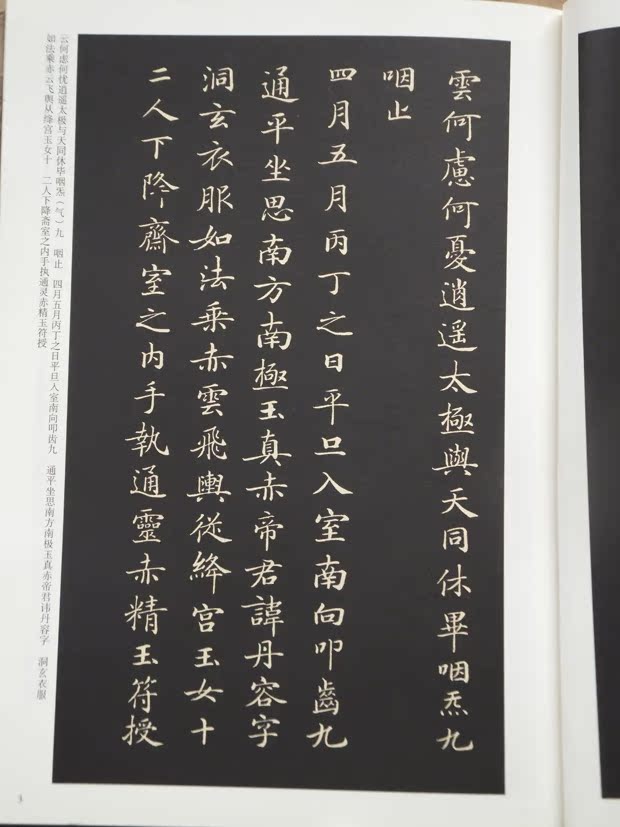 雲何慮何憂逍遥太極與天同休畢咽炁九
咽止
四月五月丙丁之日平旦入室南向叩齒九
通平坐思南方南極玉真赤帝君諱丹容字
洞玄衣服如法乗赤雲飛輿従絳宫玉女十
二人下降齋室之内手執通靈赤精玉符授
云何虑何忧逍遥太极与天同休毕咽炁（气）九　咽止　四月五月丙丁之日平旦入室南向叩齿九　通平坐思南方南极玉真赤帝君讳丹容字　洞玄衣服
如法乘赤云飞舆从绛宫玉女十　二人下降斋室之内手执通灵赤精玉符授
3